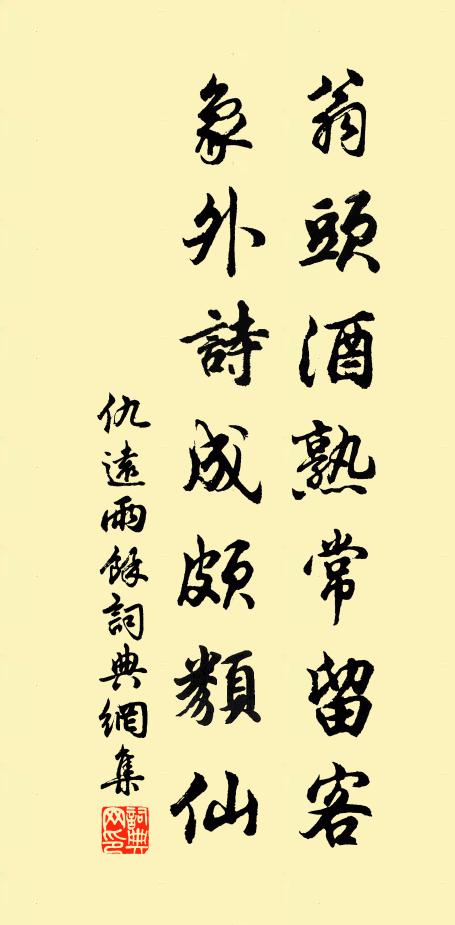 翁頭酒熟常留客
象外詩成頗類仙
仇遠雨餘詞典網集
詞典網印